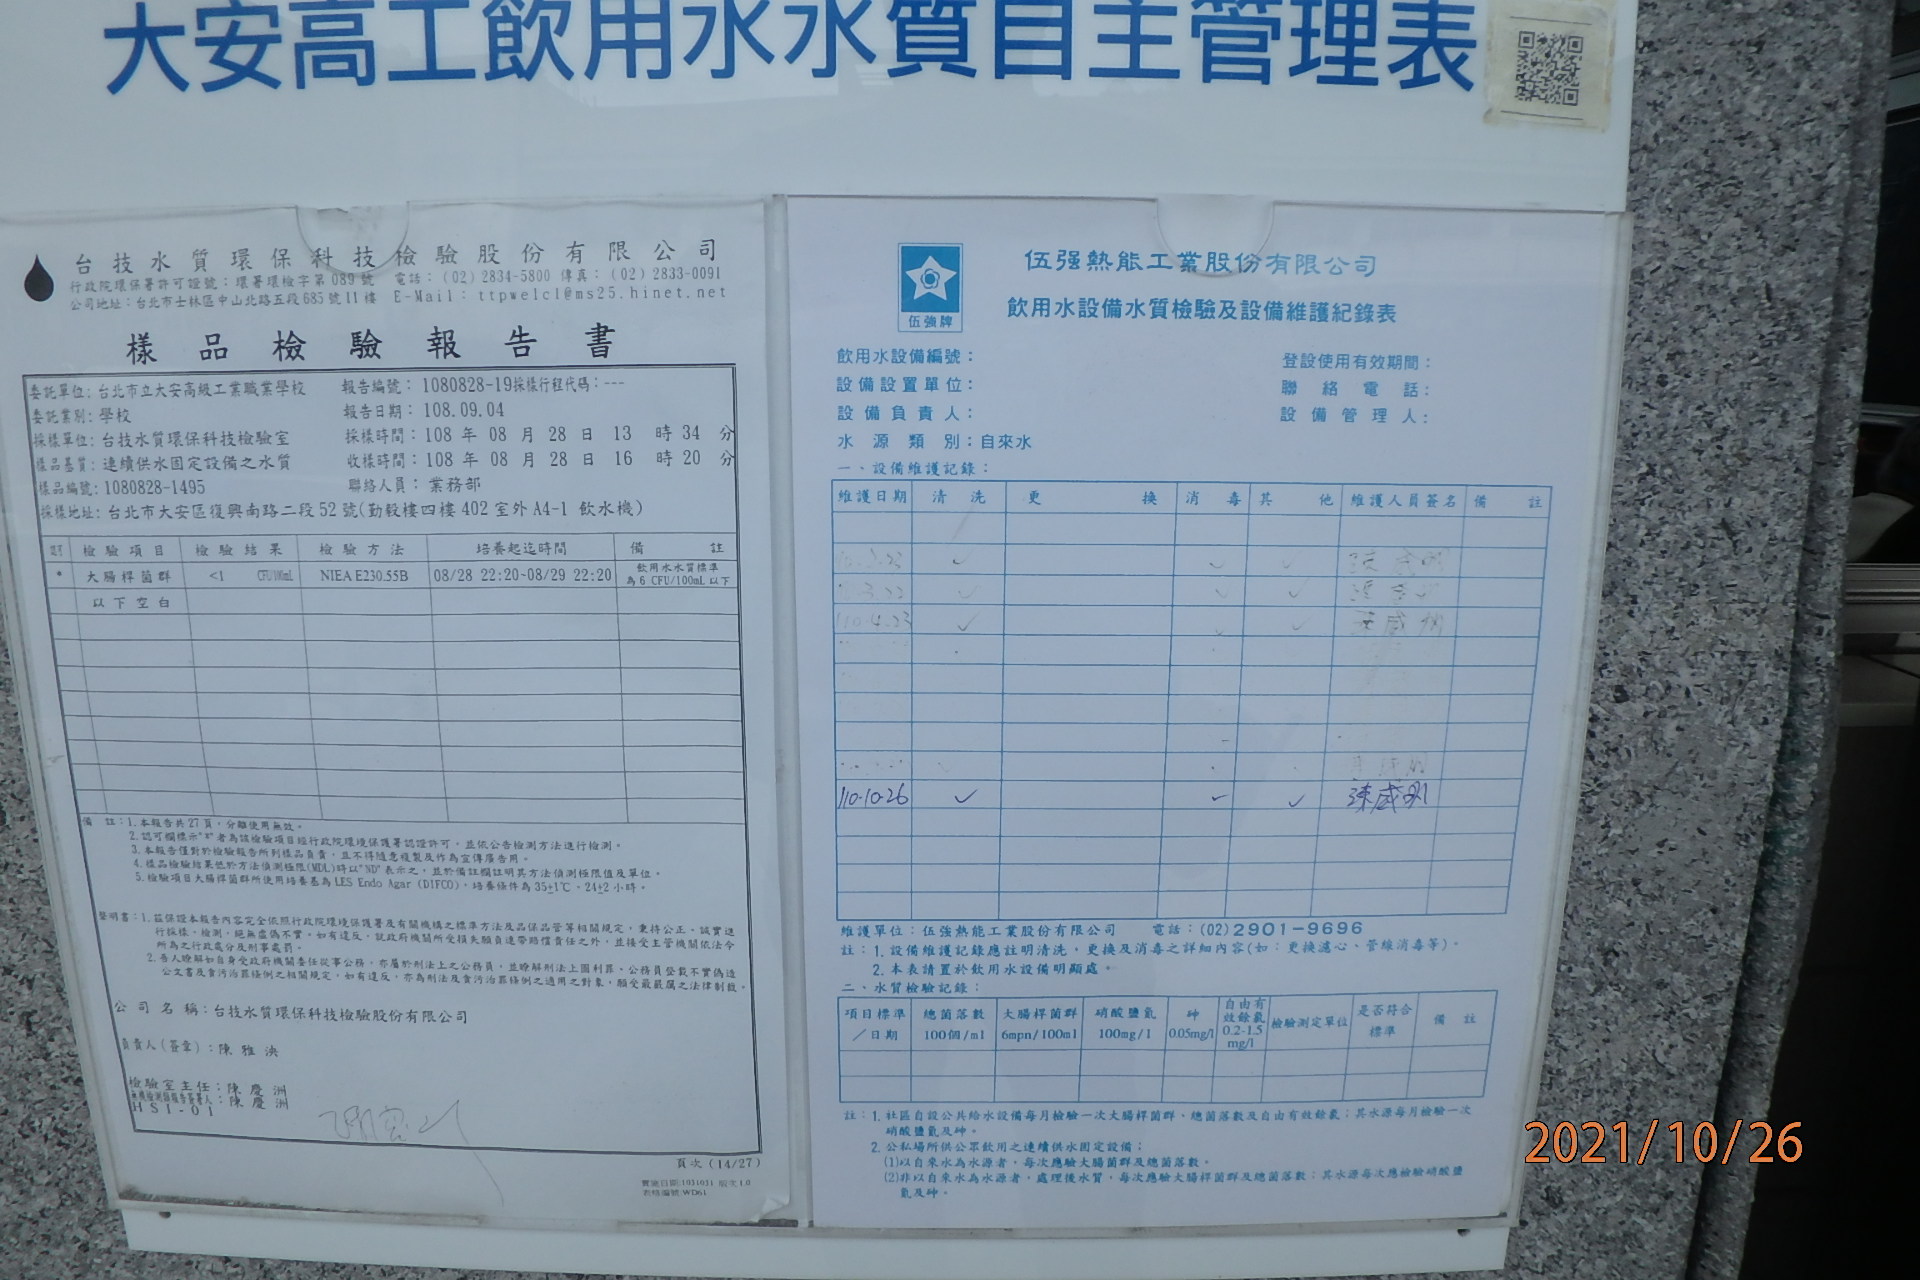 大安高工飲用水水質自主管理表
台技水質環保科技檢驗股份有限公司
行政院環保署許可證號：環署環檢字第089號 電話：(02)2834-5800 傳真：(02)2833-0091
公司地址：台北市士林區中山北路五段685號11樓 E-Mail：ttpwelcl@ms25.hinet.net
樣品檢驗報告書
委託單位：台北市立大安高級工業職業學校 報告編號：1080828-19採樣行程代碼：---
委託業別：學校 報告日期：108.09.04
採樣單位：台技水質環保科技檢驗室 採樣時間：108 年 08 月 28 日 13 時 34 分
樣品基質：連續供水固定設備之水質 收樣時間：108 年 08 月 28 日 16 時 20 分
樣品編號：1080828-1495 聯絡人員：業務部
採樣地址：台北市大安區復興南路二段52號(勤毅樓四樓402室外A4-1飲水機)
檢驗項目 檢驗結果 檢驗方法 培養起迄時間 備註
* 大腸桿菌群 <1 CFU/100mL NIEA E230.55B 08/28 22:20~08/29 22:20 飲用水水質標準為6 CFU/100mL以下
以下空白
備註：1.本報告共27頁，分離使用無效。
2.認可欄標示"*"者為該檢驗項目經行政院環境保護署認證許可，並依公告檢測方法進行檢測。
3.本報告僅對於檢驗報告所列樣品負責，且不得隨意複製及作為宣傳廣告用。
4.樣品檢驗結果低於方法偵測極限(MDL)時以"ND"表示之，並於備註欄註明其方法偵測極限值及單位。
5.檢驗項目大腸桿菌群所使用培養基為LES Endo Agar (DIFCO)，培養條件為35±1℃，24±2小時。
聲明書：1.茲保證本報告內容完全依照行政院環境保護署及有關機構之標準方法及品保品管等相關規定，秉持公正、誠實進
行採樣、檢測，絕無虛偽不實，如有違反，就政府機關所受損失願負連帶賠償責任之外，並接受主管機關依法令
所為之行政處分及刑事處罰。
2.吾人瞭解如自身受政府機關委任從事公務，亦屬於刑法上之公務員，並瞭解刑法上圖利罪、公務員登載不實偽造
公文書及貪污治罪條例之相關規定，如有違反，亦為刑法及貪污治罪條例之適用之對象，願受最嚴厲之法律制裁。
公司名稱：台技水質環保科技檢驗股份有限公司
負責人(簽章)：陳雅泱
檢驗室主任：陳慶洲
陳慶洲
HSI-01
頁次 (14/27)
實施日期:1031031 版次1.0
表格編號:WD61
伍強牌
伍强熱能工業股份有限公司
飲用水設備水質檢驗及設備維護紀錄表
飲用水設備編號： 登設使用有效期間：
設備設置單位： 聯絡電話：
設備負責人： 設備管理人：
水源類別：自來水
一、設備維護記錄：
維護日期 清洗 更換 消毒 其他 維護人員簽名 備註
110.4.23 ✓ ✓ ✓
110.10.26 ✓ ✓ ✓ 陳威明
維護單位：伍強熱能工業股份有限公司 電話：(02)2901-9696
註：1.設備維護記錄應註明清洗，更換及消毒之詳細內容(如：更換濾心、管線消毒等)。
2.本表請置於飲用水設備明顯處。
二、水質檢驗記錄：
項目標準／日期 總菌落數100個/ml 大腸桿菌群6mpn/100ml 硝酸鹽氮100mg/l 砷0.05mg/l 自由有效餘氯0.2-1.5mg/l 檢驗測定單位 是否符合標準 備註
註：1.社區自設公共給水設備每月檢驗一次大腸桿菌群、總菌落數及自由有效餘氯；其水源每月檢驗一次
硝酸鹽氮及砷。
2.公私場所供公眾飲用之連續供水固定設備；
(1)以自來水為水源者，每次應驗大腸菌群及總菌落數。
(2)非以自來水為水源者，處理後水質，每次應驗大腸桿菌群及總菌落數；其水源每次應檢驗硝酸鹽
氮及砷。
2021/10/26